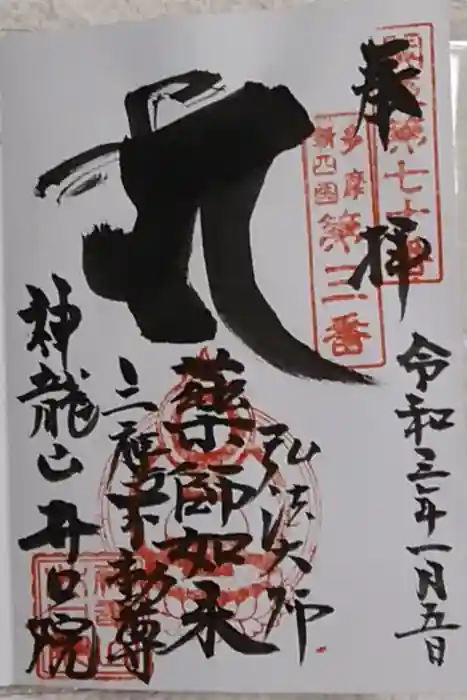 奉拝
多摩
新四国
第三番
令和三年一月五日
弘法大師
薬師如来
三種不動尊
神龍山 井口院